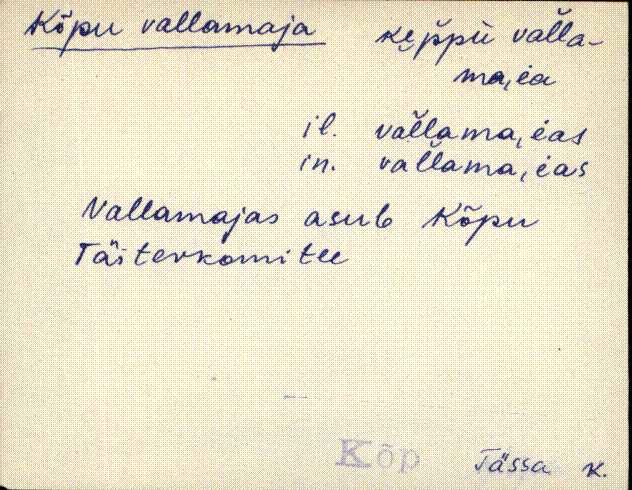 Kõpu vallamaja
ke̮p̆pù val̆la-
ma,i̯a
il. val̆lama,i̯as
in. val̆lama,i̯as
Vallamajas asub Kõpu
Täitevkomitee
Kõp
Tässa k.